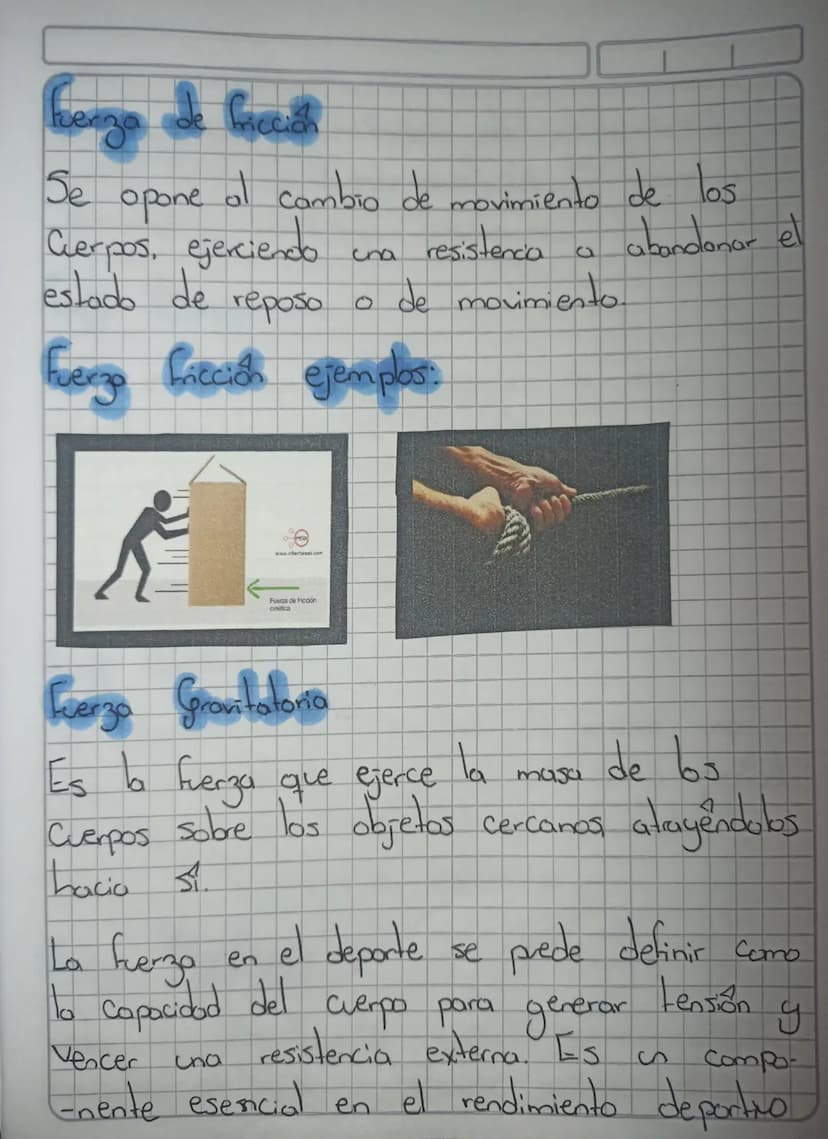 Fuerza de fricción
Se opone al cambio de movimiento de los
Cuerpos, ejerciendo una resistencia a abandonar el
estado de reposo o de movimiento.
Fuerza fricción ejemplos:
Fuerza de fricción
cinética
Fuerza Gravitatoria
Es la fuerza que ejerce la masa de los
Cuerpos sobre los objetos cercanos atrayéndolos
hacia sí.
La fuerza en el deporte se puede definir como
la capacidad del cuerpo para generar tensión y
vencer una resistencia externa. Es un compo-
-nente esencial en el rendimiento deportivo